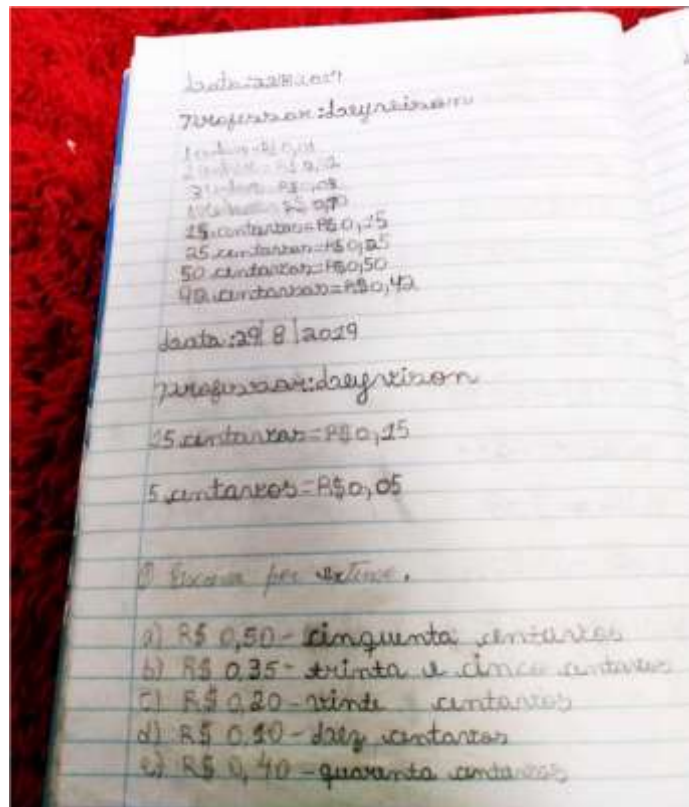 data:
Professor: deyveison
1 R$ 0,01
2 R$ 0,02
3 R$ 0,03
R$ 0,10
15 centavos=R$0,15
25 centavos=R$0,25
50 centavos=R$0,50
42 centavos=R$0,42
data:29|8|2019
Professor:deyveison
25 centavos=R$0,25
5 centavos=R$0,05
Escreva por extenso.
a) R$ 0,50-cinquenta centavos
b) R$ 0,35-trinta e cinco centavos
c) R$ 0,20-vinte centavos
d) R$ 0,10-dez centavos
e) R$ 0,40-quarenta centavos